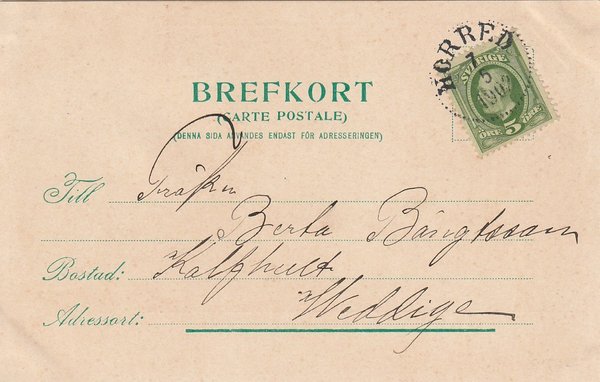 HORRED
7
5
190
SVERIGE
ÖRE 5 ÖRE
BREFKORT
(CARTE POSTALE)
(DENNA SIDA ANVÄNDES ENDAST FÖR ADRESSERINGEN)
Till Fröken
Berta Bängtsson
Bostad: Kalfhult
Adressort: Weddige